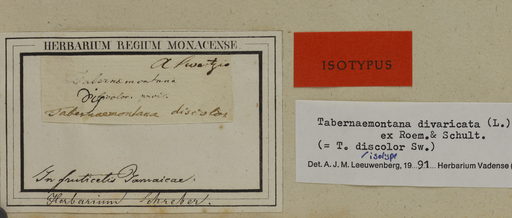 HERBARIUM REGIUM MONACENSE
A Swartzio
Tabernaemontana
discolor
Tabernaemontana discolor
In fruticetis Jamaicae.
Herbarium Schreber.
ISOTYPUS
Tabernaemontana divaricata (L.)
ex Roem.& Schult.
(= T. discolor Sw.)
isotype
Det. A. J. M. Leeuwenberg, 1991 Herbarium Vadense (